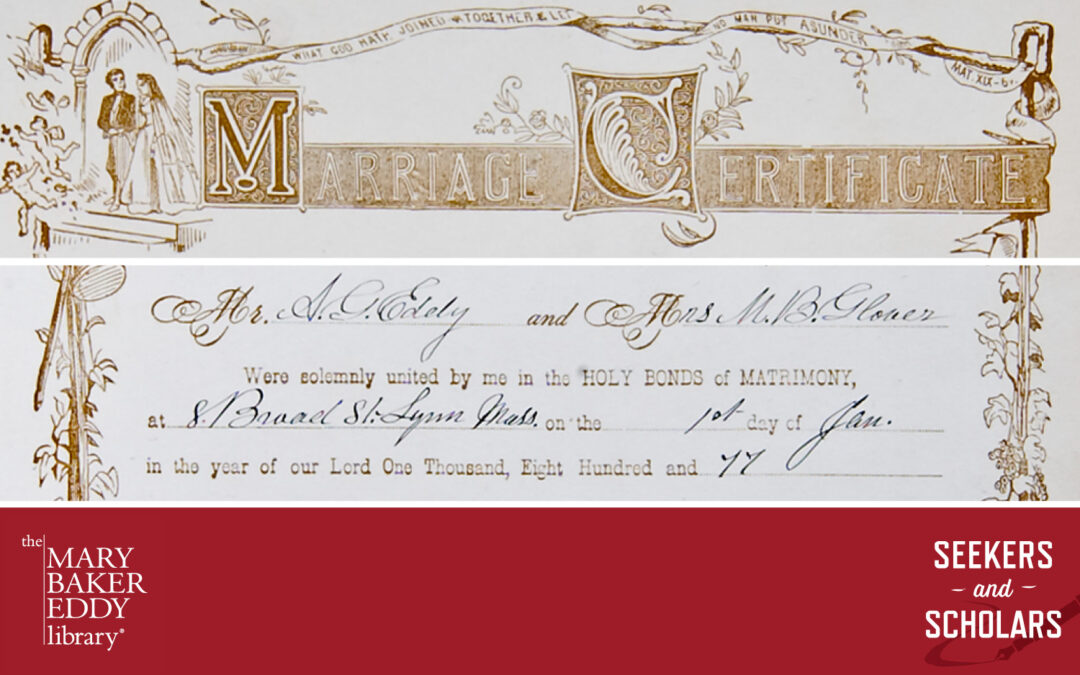 WHAT GOD HATH JOINED TOGETHER LET NO MAN PUT ASUNDER MAT. XIX-6.
MARRIAGE CERTIFICATE.
Mr. A. G. Eddy and Mrs M. B. Glover
Were solemnly united by me in the HOLY BONDS of MATRIMONY,
at 8. Broad St. Lynn Mass. on the 1st day of Jan.
in the year of our Lord One Thousand, Eight Hundred and 77
the
MARY
BAKER
EDDY
library®
SEEKERS
- and -
SCHOLARS